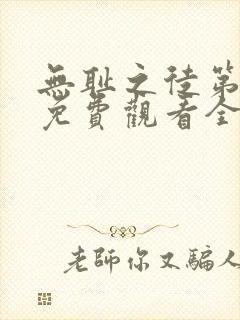 無恥之徒第
免費觀看全
老師你又騙人